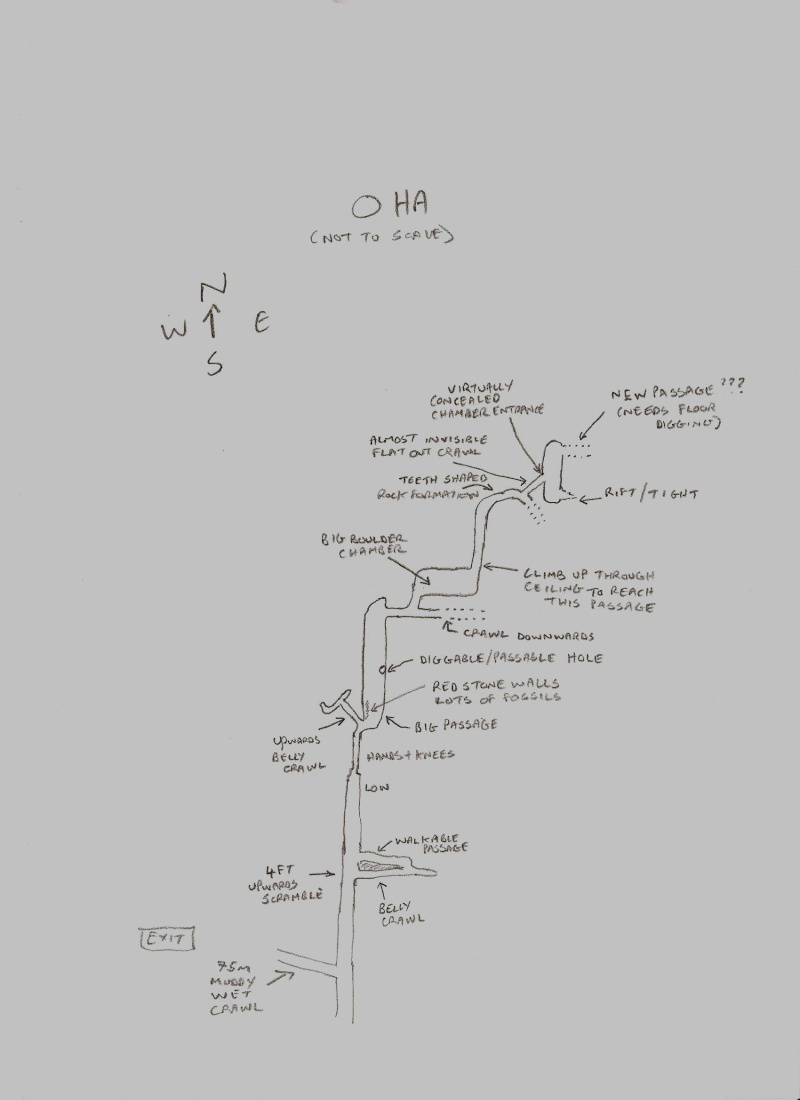 O HA
(NOT TO SCALE)
N
W E
S
VIRTUALLY
CONCEALED
CHAMBER ENTRANCE
NEW PASSAGE ???
(NEEDS FLOOR
DIGGING)
ALMOST INVISIBLE
FLAT OUT CRAWL
TEETH SHAPED
ROCK FORMATION
RIFT/TIGHT
BIG BOULDER
CHAMBER
CLIMB UP THROUGH
CEILING TO REACH
THIS PASSAGE
CRAWL DOWNWARDS
DIGGABLE/PASSABLE HOLE
RED STONE WALLS
LOTS OF FOSSILS
BIG PASSAGE
UPWARDS
BELLY
CRAWL
HANDS+KNEES
LOW
WALKABLE
PASSAGE
4FT
UPWARDS
SCRAMBLE
BELLY
CRAWL
EXIT
75M
MUDDY
WET
CRAWL